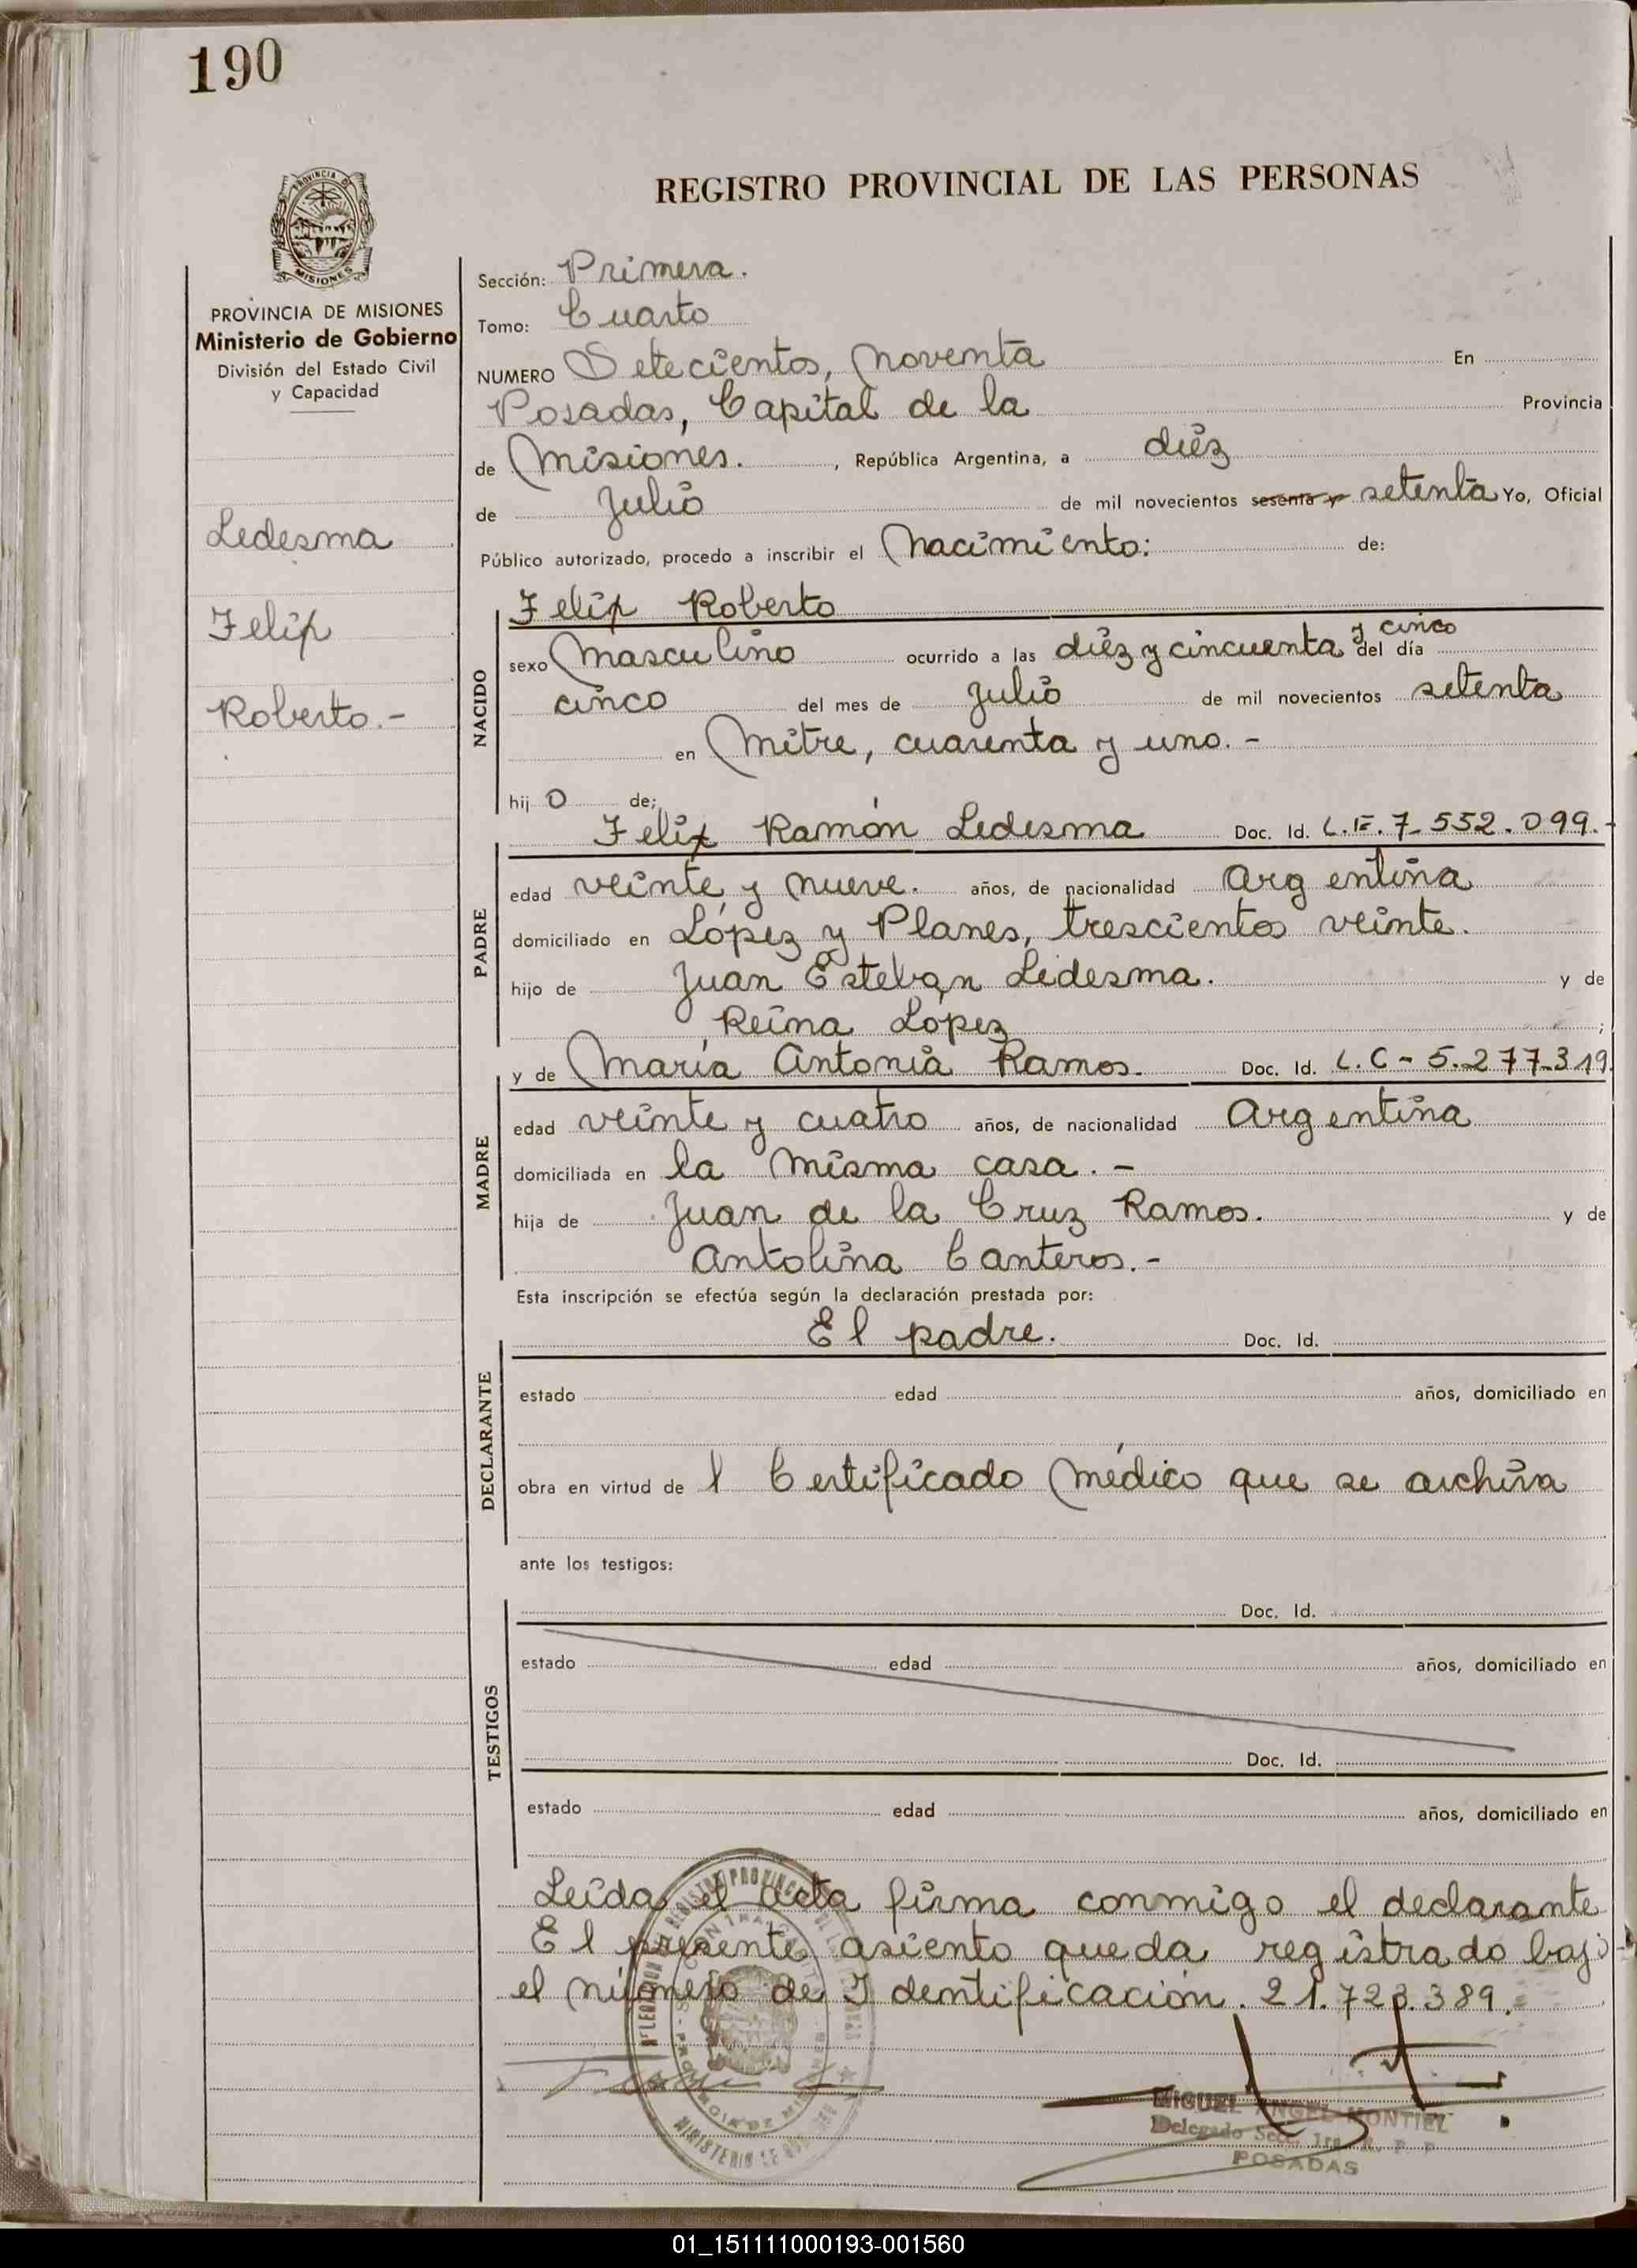 190
REGISTRO PROVINCIAL DE LAS PERSONAS
PROVINCIA DE MISIONES
PROVINCIA DE MISIONES
Ministerio de Gobierno
División del Estado Civil
y Capacidad
Ledesma
Felix
Roberto.-
Sección: Primera.
Tomo: Cuarto
NUMERO Setecientos, noventa En
Posadas, Capital de la Provincia
de Misiones. , República Argentina, a diéz
de Julio de mil novecientos sesenta y setenta Yo, Oficial
Público autorizado, procedo a inscribir el nacimiento: de:
NACIDO
Felix Roberto
sexo masculino ocurrido a las diéz y cincuenta y cinco del día
cinco del mes de Julio de mil novecientos setenta
en Mitre, cuarenta y uno.-
hij o de;
PADRE
Felix Ramón Ledesma Doc. Id. L.E. 7.552.099.-
edad veinte y nueve. años, de nacionalidad Argentina
domiciliado en López y Planes, trescientos veinte.
hijo de Juan Esteban Ledesma. y de
Reina López ;
MADRE
y de María Antonia Ramos. Doc. Id. L.C - 5.277.319
edad veinte y cuatro años, de nacionalidad Argentina
domiciliada en la misma casa.-
hija de Juan de la Cruz Ramos. y de
Antolina Canteros.-
Esta inscripción se efectúa según la declaración prestada por:
DECLARANTE
El padre. Doc. Id.
estado edad años, domiciliado en
obra en virtud de l Certificado médico que se archiva
ante los testigos:
TESTIGOS
Doc. Id.
estado edad años, domiciliado en
Doc. Id.
estado edad años, domiciliado en
Leída el acta firma conmigo el declarante
El presente asiento queda registrado bajo
el número de Identificación. 21.723.389.
MIGUEL ANGEL MONTIEL
Delegado Secc. 1ra. R. P. P.
POSADAS
01_151111000193-001560